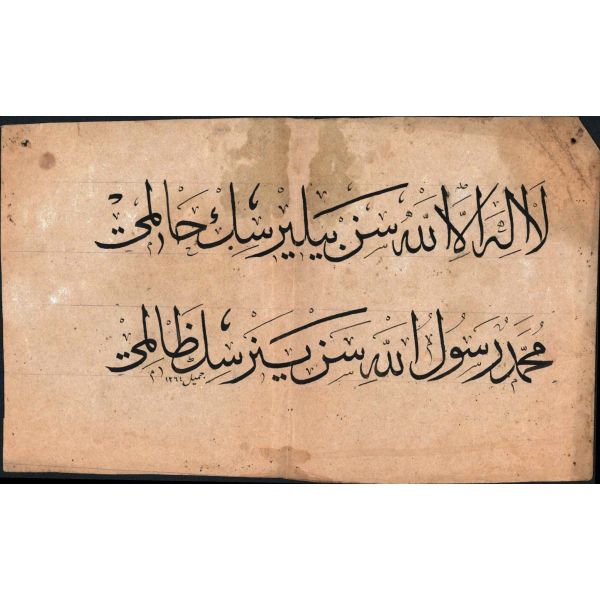 لا اله الا الله سن بيليرسك حالمى
محمد رسول الله سن ييزسك ظالمى
جميل ١٢٦٤